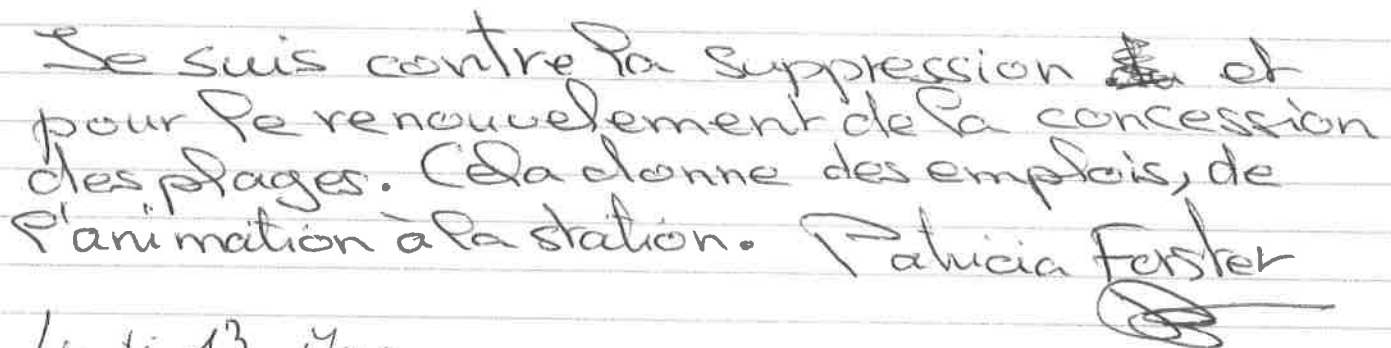 Je suis contre la suppression et
pour le renouvelement de la concession
des plages. Cela donne des emplois, de
l'animation à la station. Patricia Forster
13